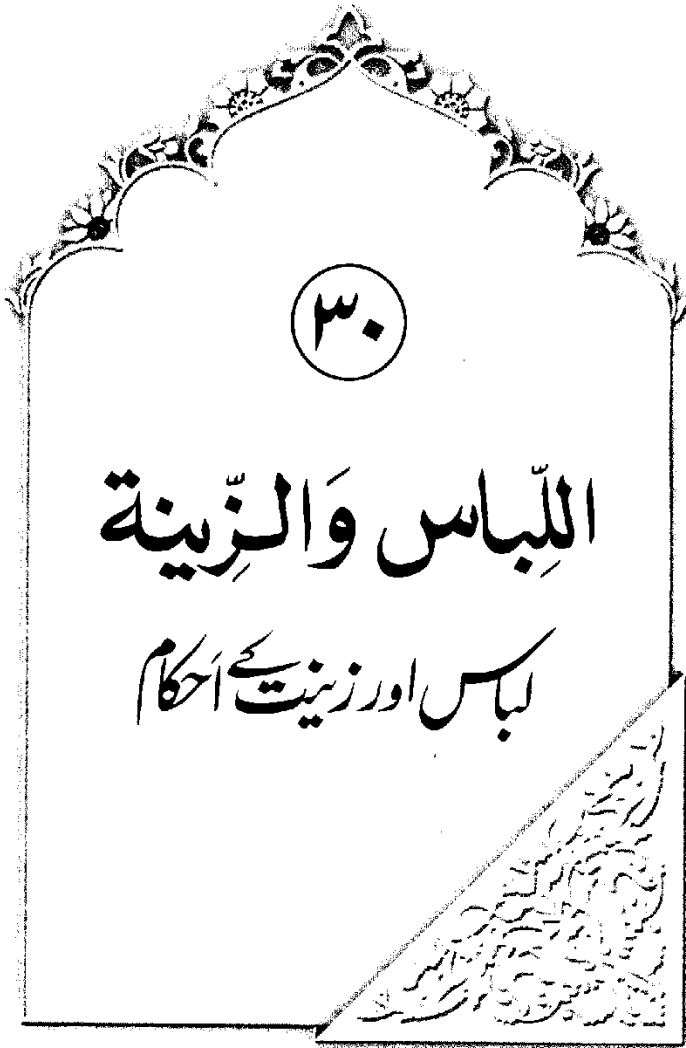 ۳۰
اللِّباس وَالـزِّينة
لباس اور زینت کے اَحکام